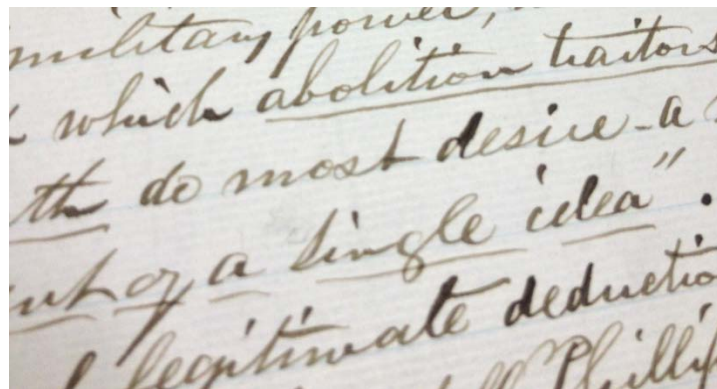 military power,
which abolition traitors
th do most desire - a
of a single idea".
legitimate deductio
Philli